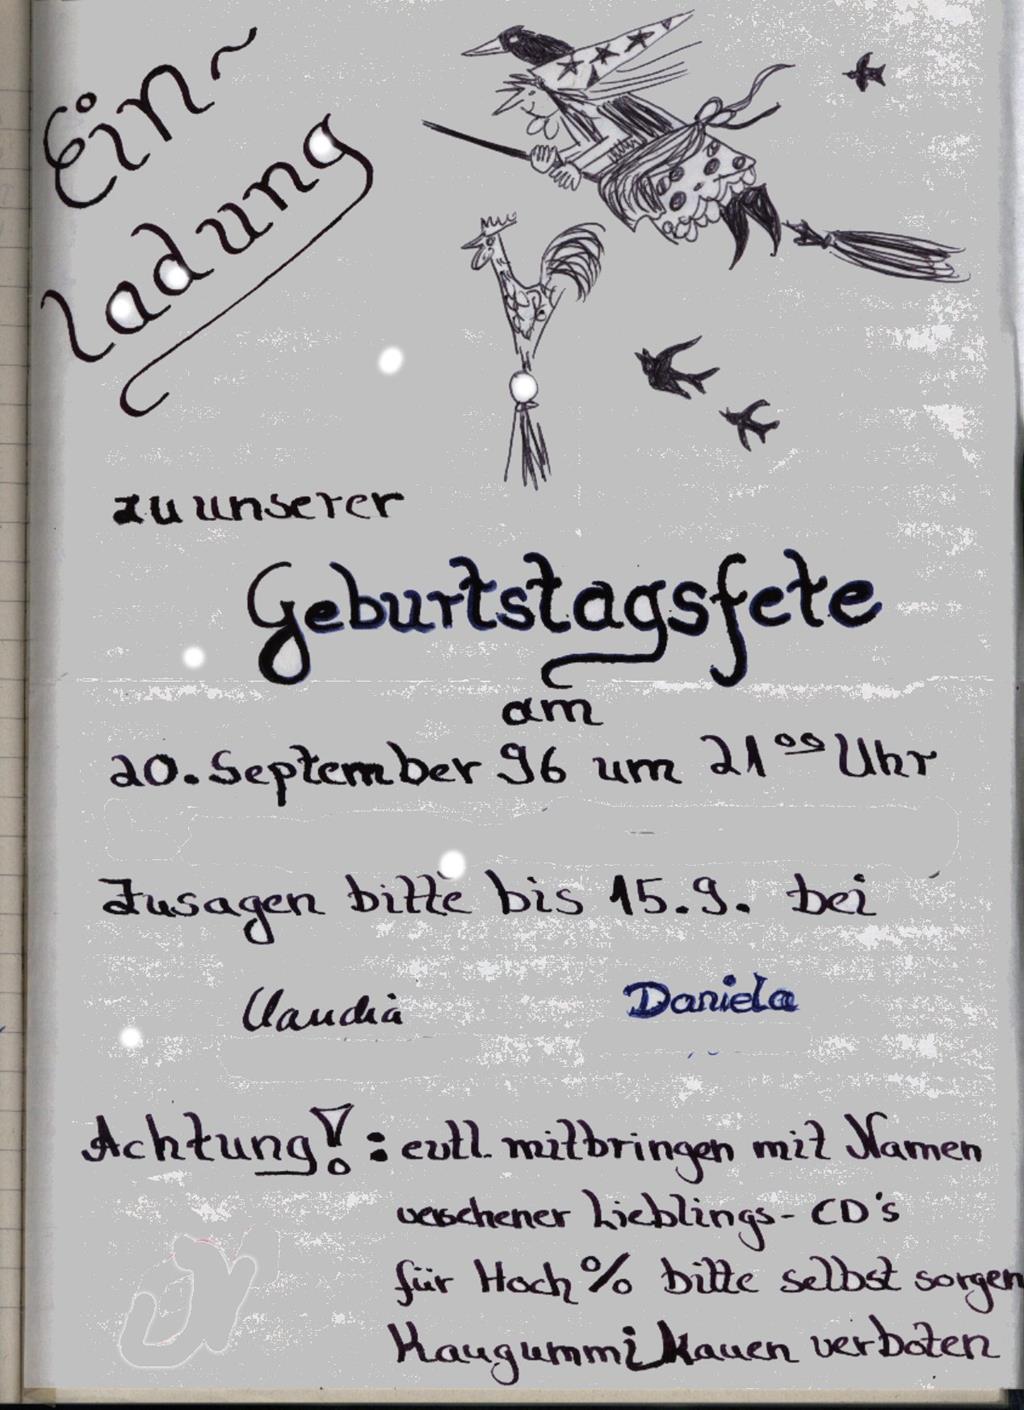 Ein~
ladung
zu unserer
Geburtstagsfete
am
20. September 96 um 21⁰⁰ Uhr
Zusagen bitte bis 15.9. bei
Claudia Daniela
Achtung!: evtl. mitbringen mit Namen
versehener Lieblings-CD's
für Hoch% bitte selbst sorgen
Kaugummi kauen verboten